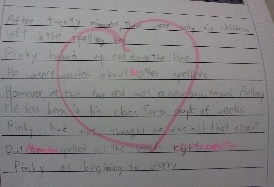 After twenty minutes there were only six children
left in the spelling bee
Binky looked up and down the line
He wasn't worried about other spellers
However, at the far end was a new boy named
He has been in his class for a couple of weeks
Binky had not thought he was all that smart
But spelled all the words
Binky is beginning to worry